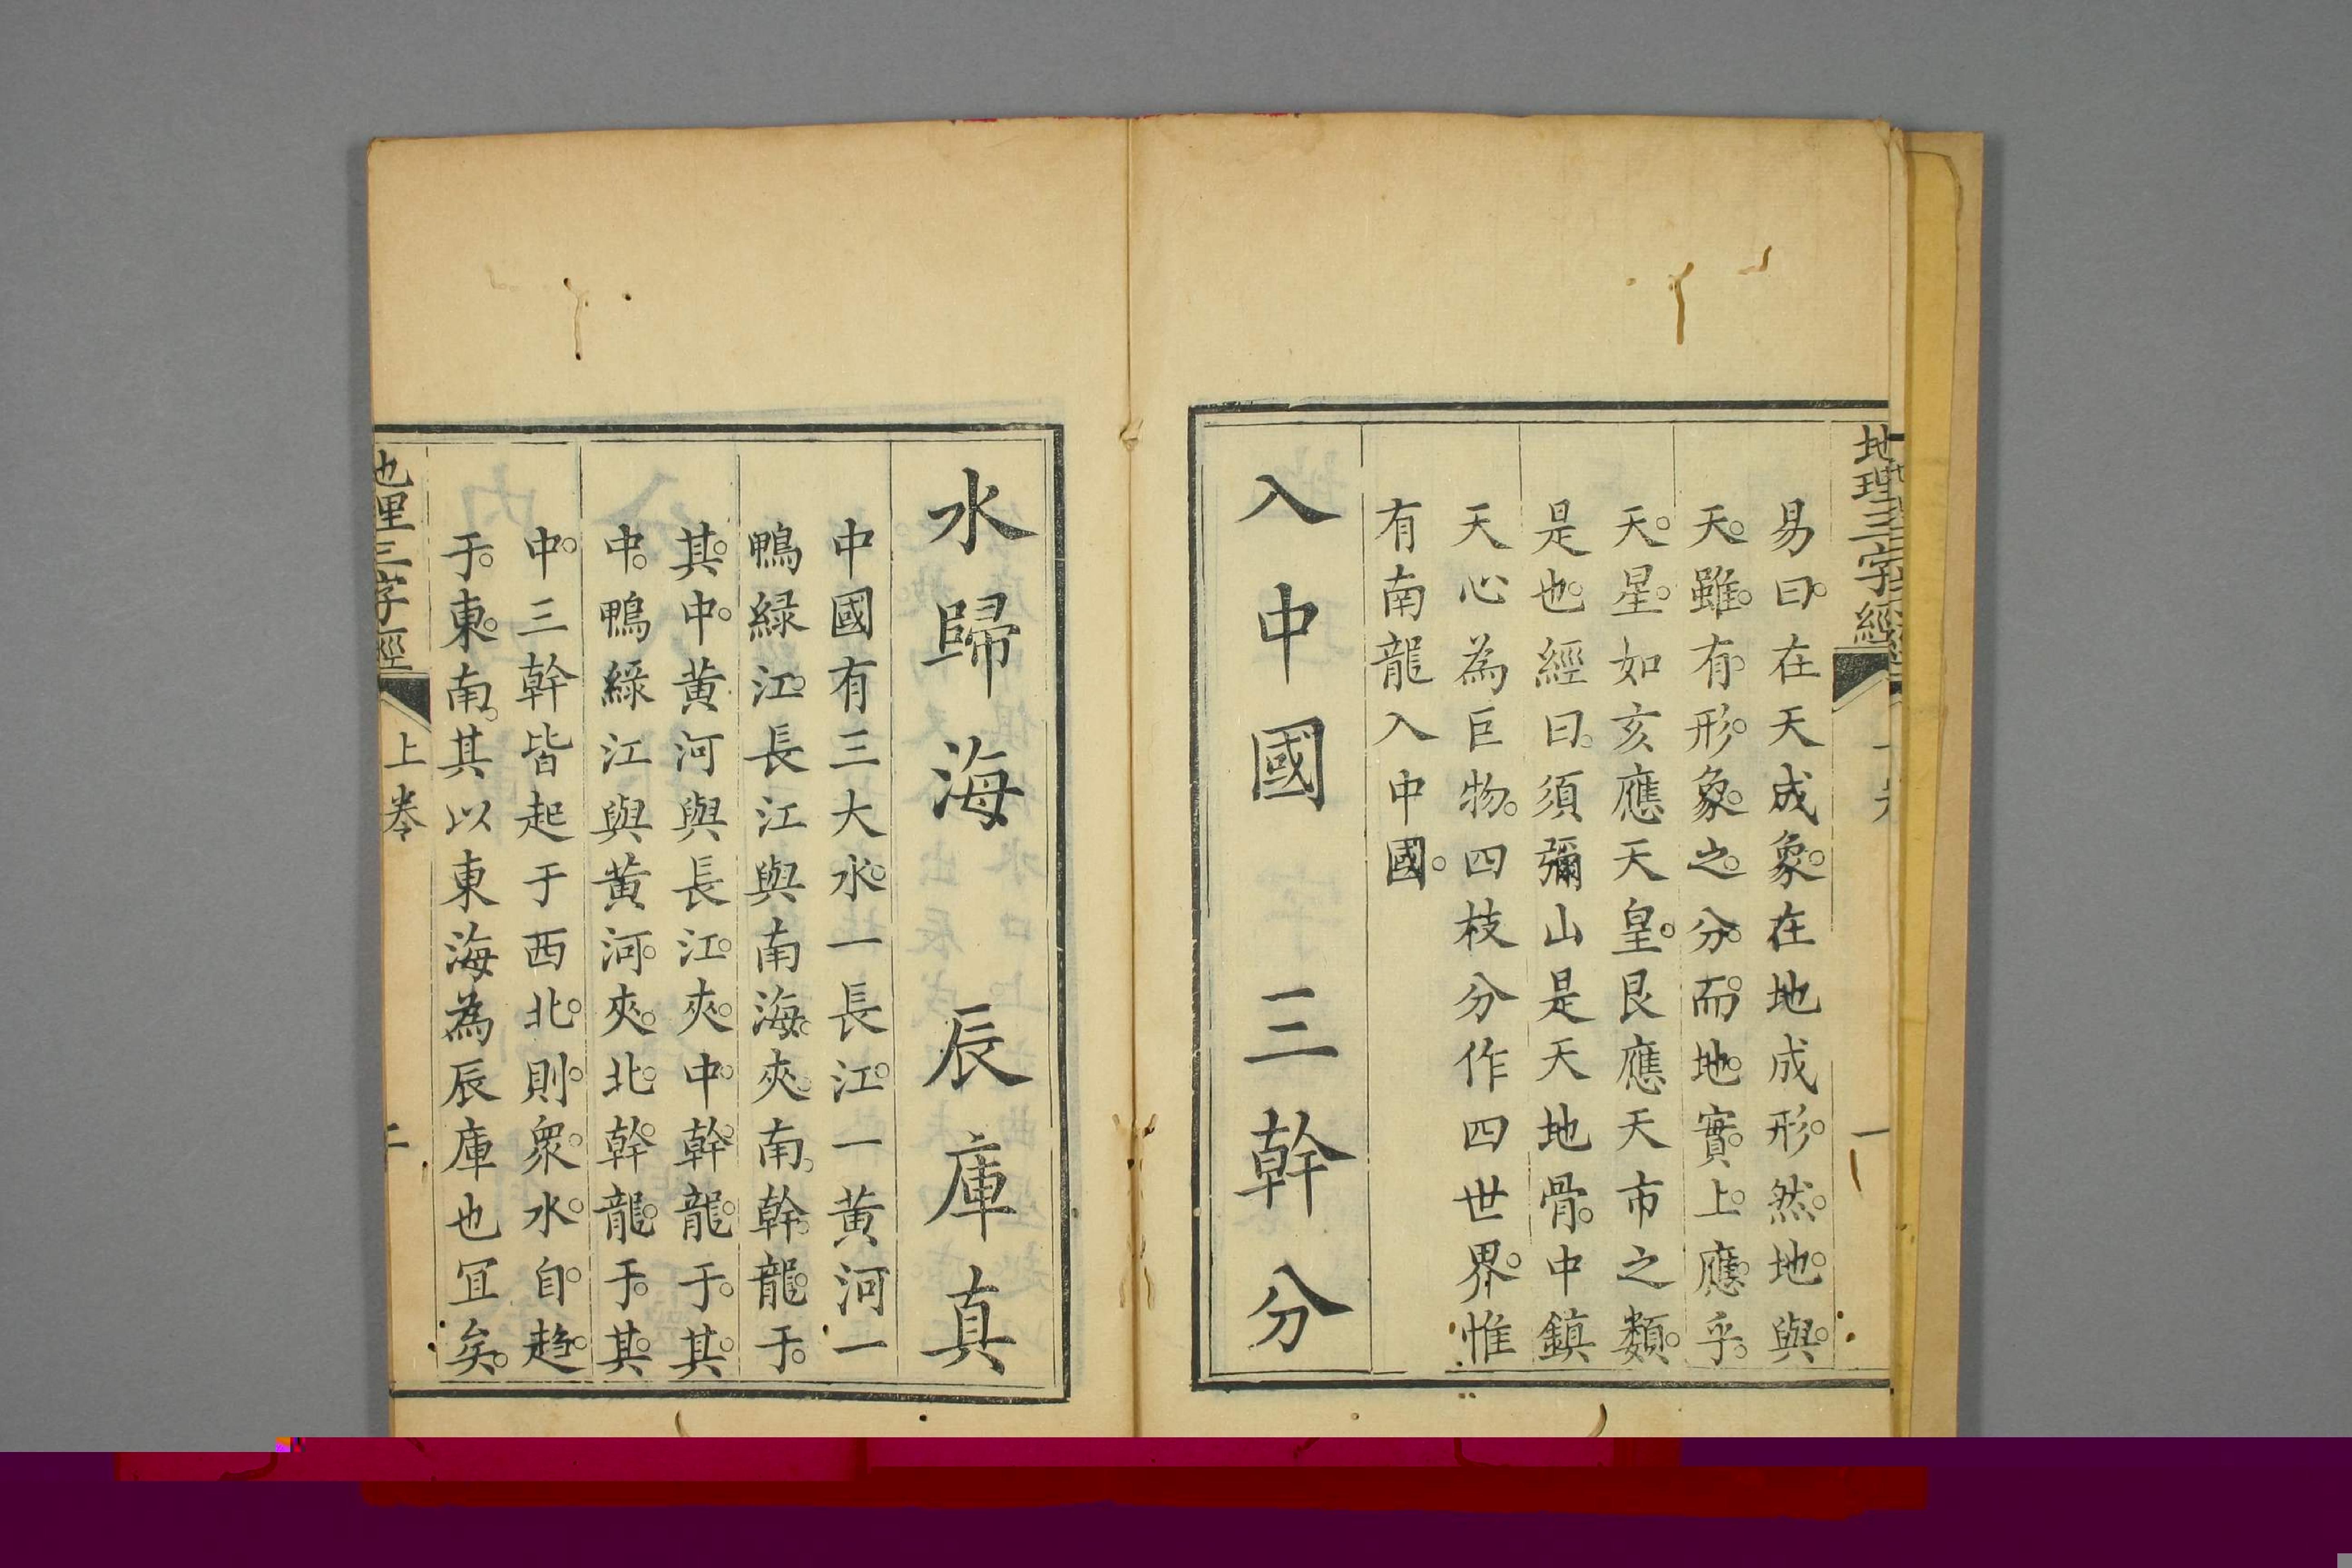 地理三字經
一
易曰在天成象在地成形然地與
天雖有形象之分而地實上應乎
天星如亥應天皇艮應天市之類
是也經曰須彌山是天地骨中鎮
天心為巨物四枝分作四世界惟
有南龍入中國
入中國 三幹分
水歸海 辰庫真
中國有三大水一長江一黃河一
鴨綠江長江與南海夾南幹龍于
其中黃河與長江夾中幹龍于其
中鴨綠江與黃河夾北幹龍于其
中三幹皆起于西北則衆水自趋
于東南其以東海為辰庫也冝矣
地理三字經
上卷
二